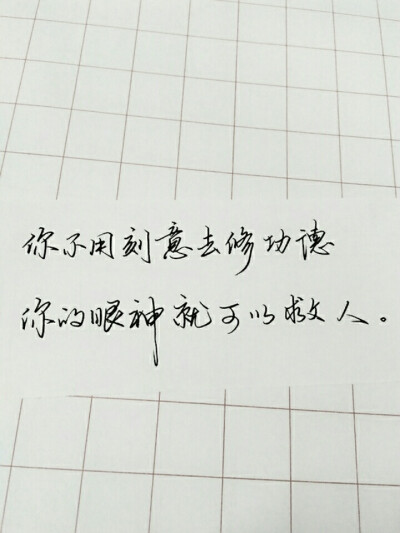 你不用刻意去修功德
你的眼神就可以救人。